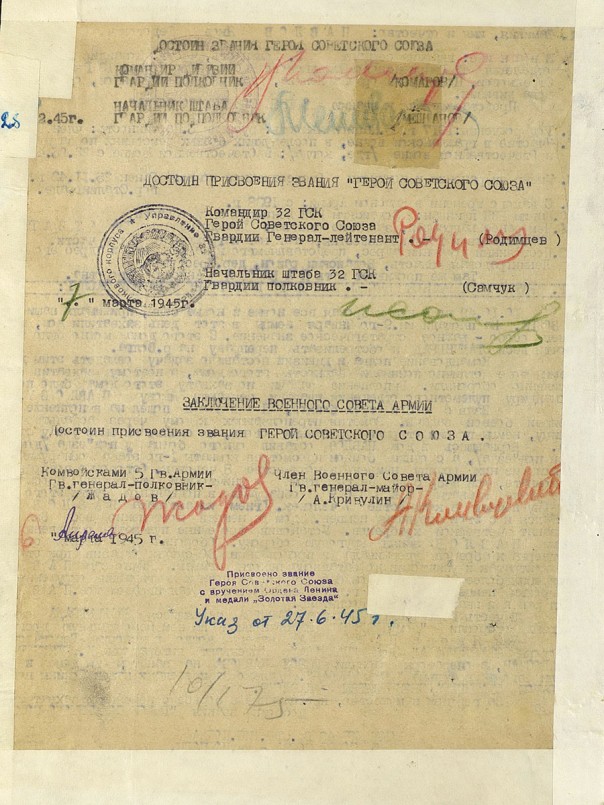 ДОСТОИН ЗВАНИЯ ГЕРОЯ СОВЕТСКОГО СОЮЗА
КОМАНДИР ДИВИЗИИ
ГВАРДИИ ПОЛКОВНИК /КОМАРОВ/
НАЧАЛЬНИК ШТАБА
ГВАРДИИ ПОДПОЛКОВНИК
28 2.45г.
ДОСТОИН ПРИСВОЕНИЯ ЗВАНИЯ "ГЕРОЙ СОВЕТСКОГО СОЮЗА"
Командир 32 ГСК
Герой Советского Союза
Гвардии Генерал-лейтенант . - (Родимцев )
Начальник штаба 32 ГСК
Гвардии полковник . - (Самчук )
"7" марта 1945г.
ЗАКЛЮЧЕНИЕ ВОЕННОГО СОВЕТА АРМИИ
Достоин присвоения звания ГЕРОЙ СОВЕТСКОГО С О Ю З А .
Комвойсками 5 Гв.Армии Член Военного Совета Армии
Гв.генерал-полковник- Гв.генерал-майор-
/ Ж а д о в / / А.Кривулин /
Жадов
" марта 1945 г.
Присвоено звание
Героя Советского Союза
с вручением Ордена Ленина
и медали „Золотая Звезда"
Указ от 27.6.45 г.